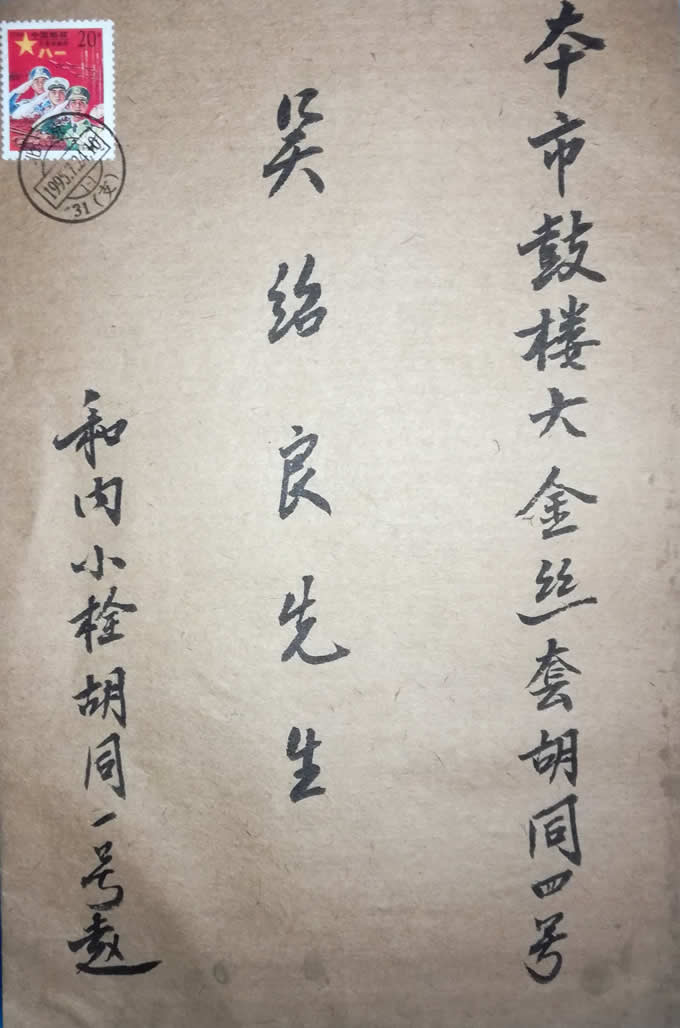 本市鼓楼大金丝套胡同四号
吴绍良先生
和内小栓胡同一号赵
中国邮政
20
八一
1995.7.24.10
31(支)